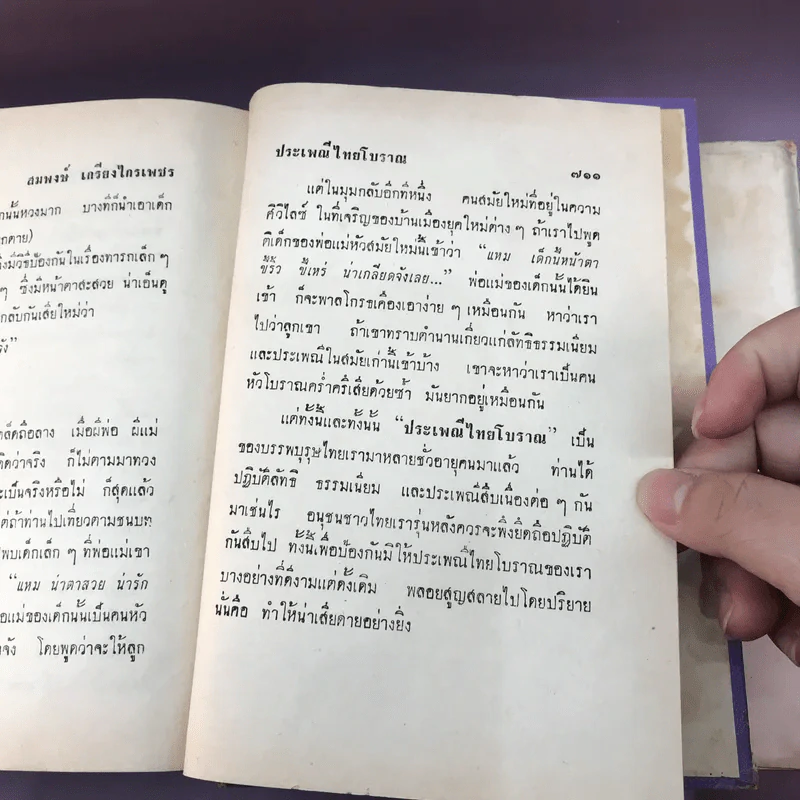 สมพงษ์ เกรียงไกรเพชร
กนั้นหวงมาก บางทีก็นำเอาเด็ก
กตาย)
ซึ่งมีวิธีป้องกันในเรื่องทารกเล็ก ๆ
ๆ ซึ่งมีหน้าตาสะสวย น่าเอ็นดู
กลับกันเสียใหม่ว่า
เคล็ดถือลาง เมื่อผีพ่อ ผีแม่
คิดว่าจริง ก็ไม่ตามมาทวง
จะเป็นจริงหรือไม่ ก็สุดแล้ว
แต่ถ้าท่านไปเที่ยวตามชนบท
พบเด็กเล็ก ๆ ที่พ่อแม่เขา
“แหม น่าตาสวย น่ารัก
อแม่ของเด็กนั้นเป็นคนหัว
โดยพูดว่าจะให้ลูก
ประเพณีไทยโบราณ
๗๑๑
แต่ในมุมกลับอีกทีหนึ่ง คนสมัยใหม่ที่อยู่ในความ
ศิวิไลซ์ ในที่เจริญของบ้านเมืองยุคใหม่ต่าง ๆ ถ้าเราไปพูด
ติเด็กของพ่อแม่หัวสมัยใหม่นี้เข้าว่า “แหม เด็กนี้หน้าตา
ขี้ริ้ว ขี้เหร่ น่าเกลียดจังเลย...” พ่อแม่ของเด็กนั้นได้ยิน
เข้า ก็จะพาลโกรธเคืองเอาง่าย ๆ เหมือนกัน หาว่าเรา
ไปว่าลูกเขา ถ้าเขาทราบตำนานเกี่ยวแก่ลัทธิธรรมเนียม
และประเพณีในสมัยเก่านี้เข้าบ้าง เขาจะหาว่าเราเป็นคน
หัวโบราณคร่ำครึเสียด้วยซ้ำ มันยากอยู่เหมือนกัน
แต่ทั้งนี้และทั้งนั้น “ประเพณีไทยโบราณ” เป็น
ของบรรพบุรุษไทยเรามาหลายชั่วอายุคนมาแล้ว ท่านได้
ปฏิบัติลัทธิ ธรรมเนียม และประเพณีสืบเนื่องต่อ ๆ กัน
มาเช่นไร อนุชนชาวไทยเรารุ่นหลังควรจะพึ่งยึดถือปฏิบัติ
กันสืบไป ทั้งนี้เพื่อป้องกันมิให้ประเพณีไทยโบราณของเรา
บางอย่างที่ดีงามแต่ดั้งเดิม พลอยสูญสลายไปโดยปริยาย
นั่นคือ ทำให้น่าเสียดายอย่างยิ่ง